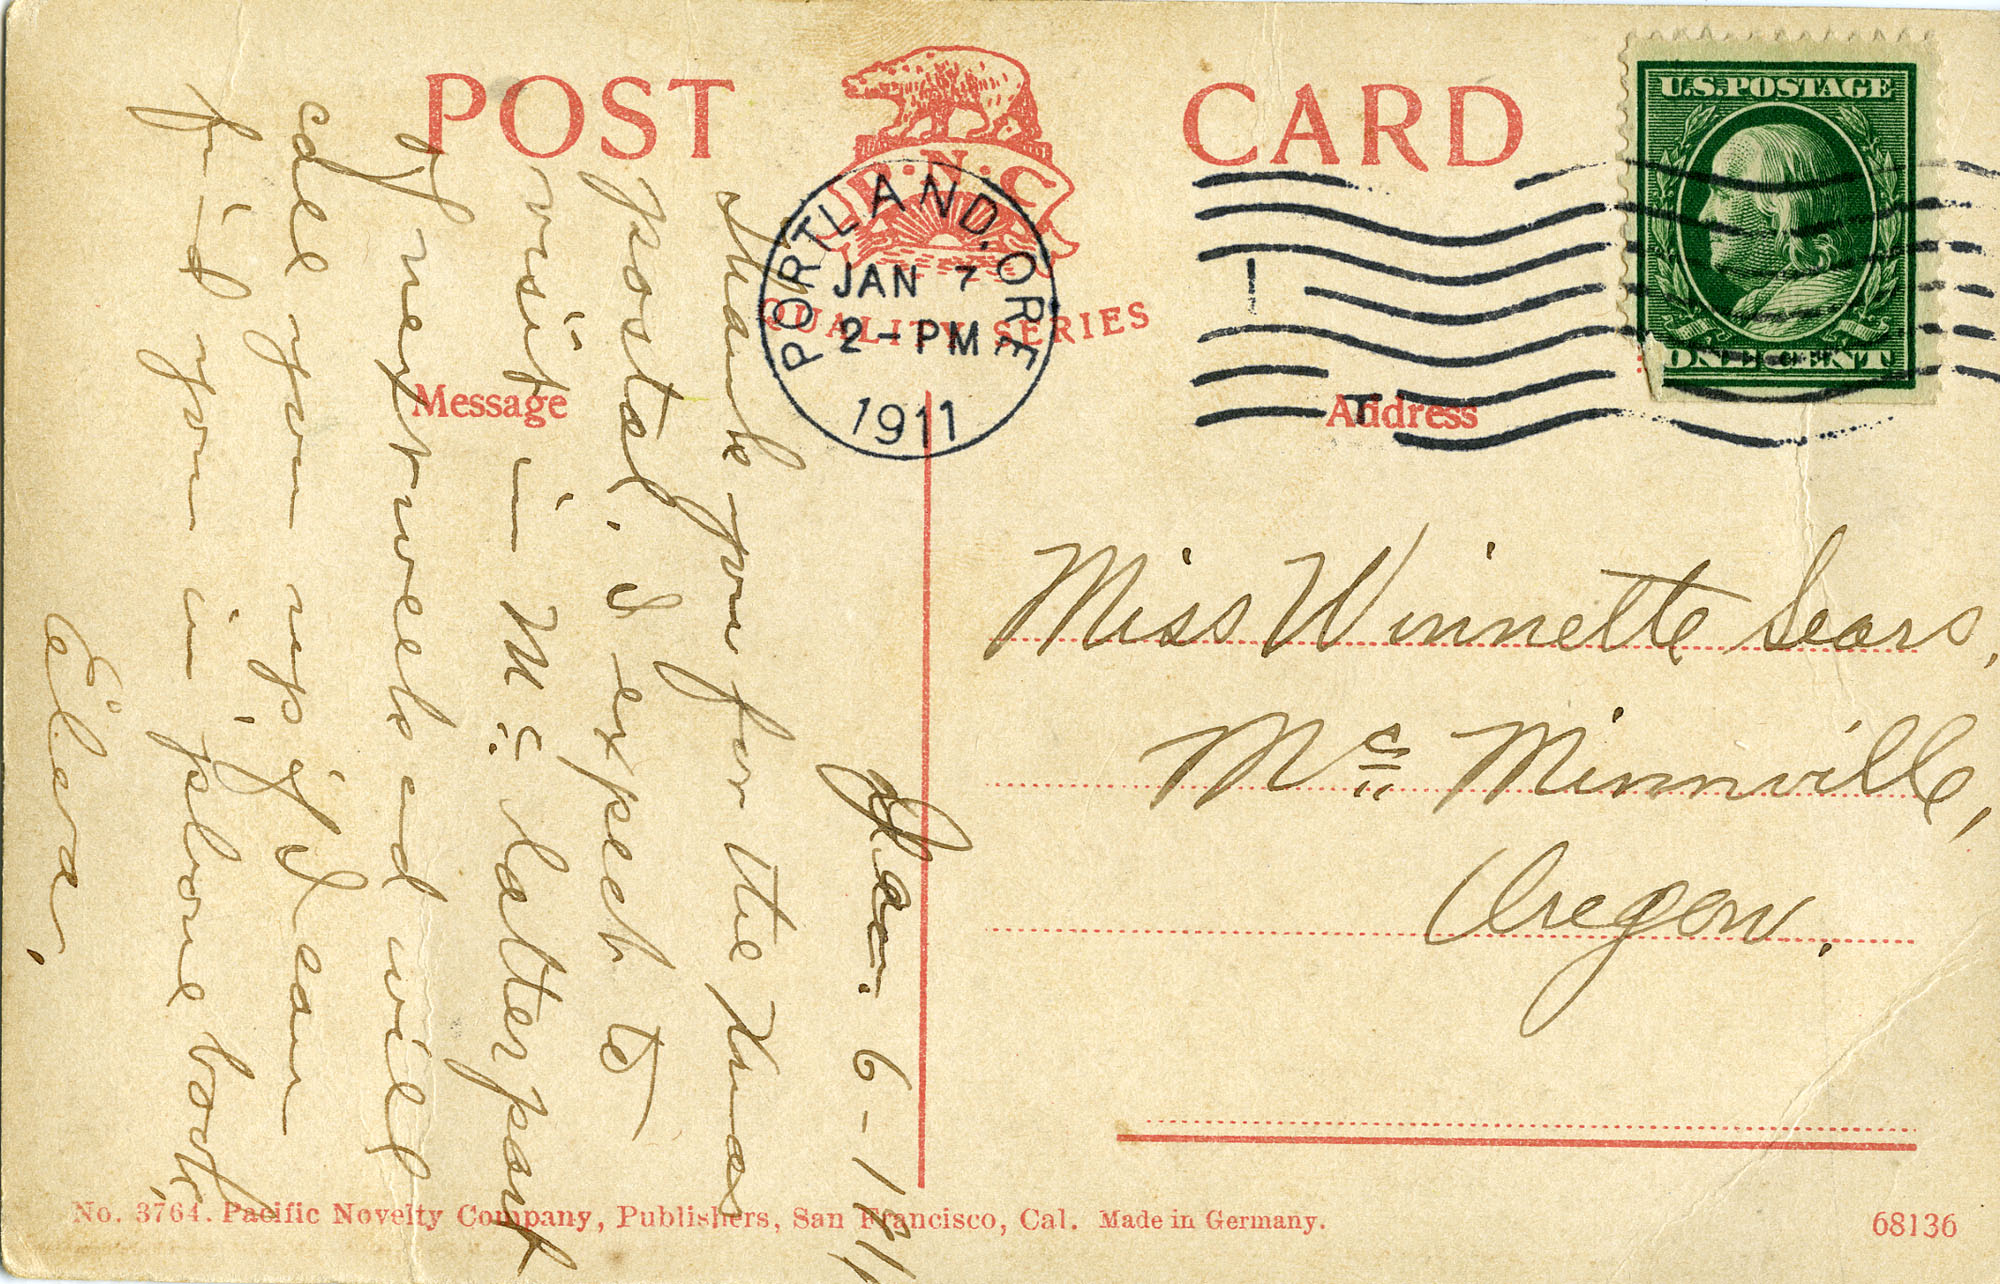 POST CARD
P.N.C.
QUALITY SERIES
PORTLAND, ORE
JAN 7
2-PM
1911
U.S. POSTAGE
ONE CENT
Message
Address
Jan. 6-1911
Thank you for the Xmas
postal. I expect to
visit in Mc latter part
of next week and will
call you up, if I can
find you in phone book,
Elva.
Miss Winnette Sears,
Mc Minnville,
Oregon.
No. 3764. Pacific Novelty Company, Publishers, San Francisco, Cal. Made in Germany.
68136